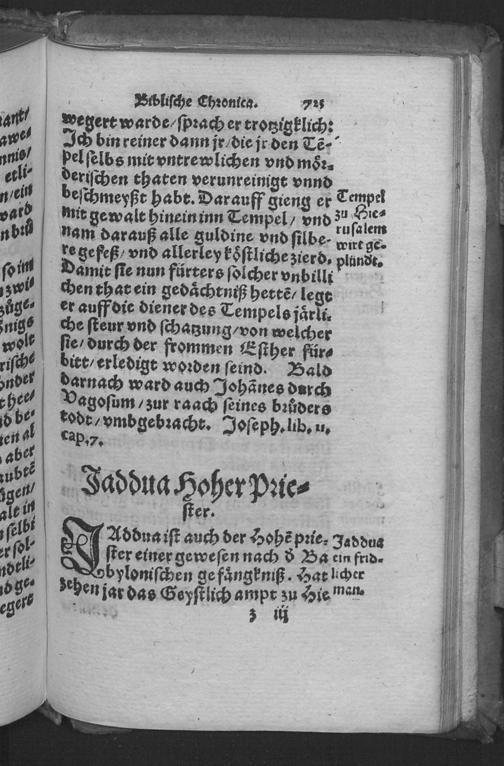 ant/
awe=
nnis/
etli-
n/ein
ward
n brů
so im
zwis
züge=
önigs
wolt
rische
onder
thee=
d be=
en al
aber
aubtē
ügen/
alt in
selbi
er sol-
ndtli-
d ge=
egert
Biblische Chronica. 725
wegert warde/sprach er trotzigklich:
Ich bin reiner dann jr/die jr den Tē-
pel selbs mit vntrewlichen vnd mör-
derischen thaten verunreinigt vnnd
beschmeyßt habt. Darauff gieng er
mit gewalt hinein inn Tempel/ vnd
nam darauß alle guldine vnd silbe-
re gefeß/ vnd allerley köstliche zierd.
Damit sie nun fürters solcher vnbilli
chen that ein gedächtniß hettē/ legt
er auff die diener des Tempels järli-
che steur vnd schatzung/von welcher
sie/durch der frommen Esther für=
bitt/erledigt worden seind. Bald
darnach ward auch Johānes durch
Vagosum/zur raach seines brůders
todt/vmbgebracht. Joseph.lib.11.
cap.7.
Tempel
zu Hie-
rusalem
wirt ge-
plündt.
Jaddua Hoher Prie=
ster.
JAddua ist auch der Hohē prie-
ster einer gewesen nach d̕ Ba
bylonischen gefängkniß. Hat
zehen jar das Geystlich ampt zu Hie
Jaddua
ein frid-
licher
man.
z iij